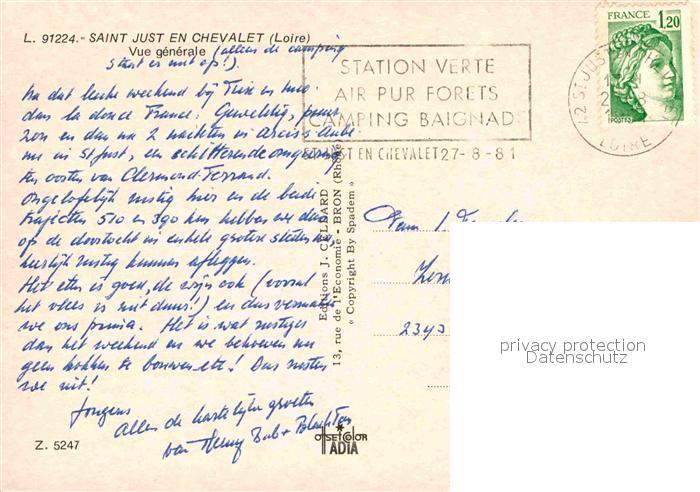 L. 91224.- SAINT JUST EN CHEVALET (Loire)
Vue générale (alleen de camping
staat er niet op!).
Na dat leuke weekend bij
dan la douce France. Geweldig,
zon en dan na 2 nachten in Arcis s. Aube
nu in St Just, een schitterende omgeving
ten oosten van Clermond-Ferrand.
Ongelofelijk rustig hier en de beide
trajecten 510 en 390 km hebben we dan
op de doortocht in enkele grotere steden na,
heerlijk rustig kunnen afleggen.
Het eten is goed, de wijn ook (vooral
het vlees is niet duur!) en dus vermaken
we ons prima. Het is wat rustiger
dan het weekend en we behoeven nu
geen hokken te bouwen etc! Dus rusten
we uit!
Jongens
allen de hartelijke groeten
van
Z. 5247
STATION VERTE
AIR PUR FORETS
CAMPING BAIGNAD
ST EN CHEVALET 27-8-81
FRANCE 1,20
POSTES
42 ST JUST
LOIRE
Editions J. CELLARD
13, rue de l'Economie - BRON (Rhône)
« Copyright By Spadem »
OFFSETCOLOR
IADIA
privacy protection
Datenschutz